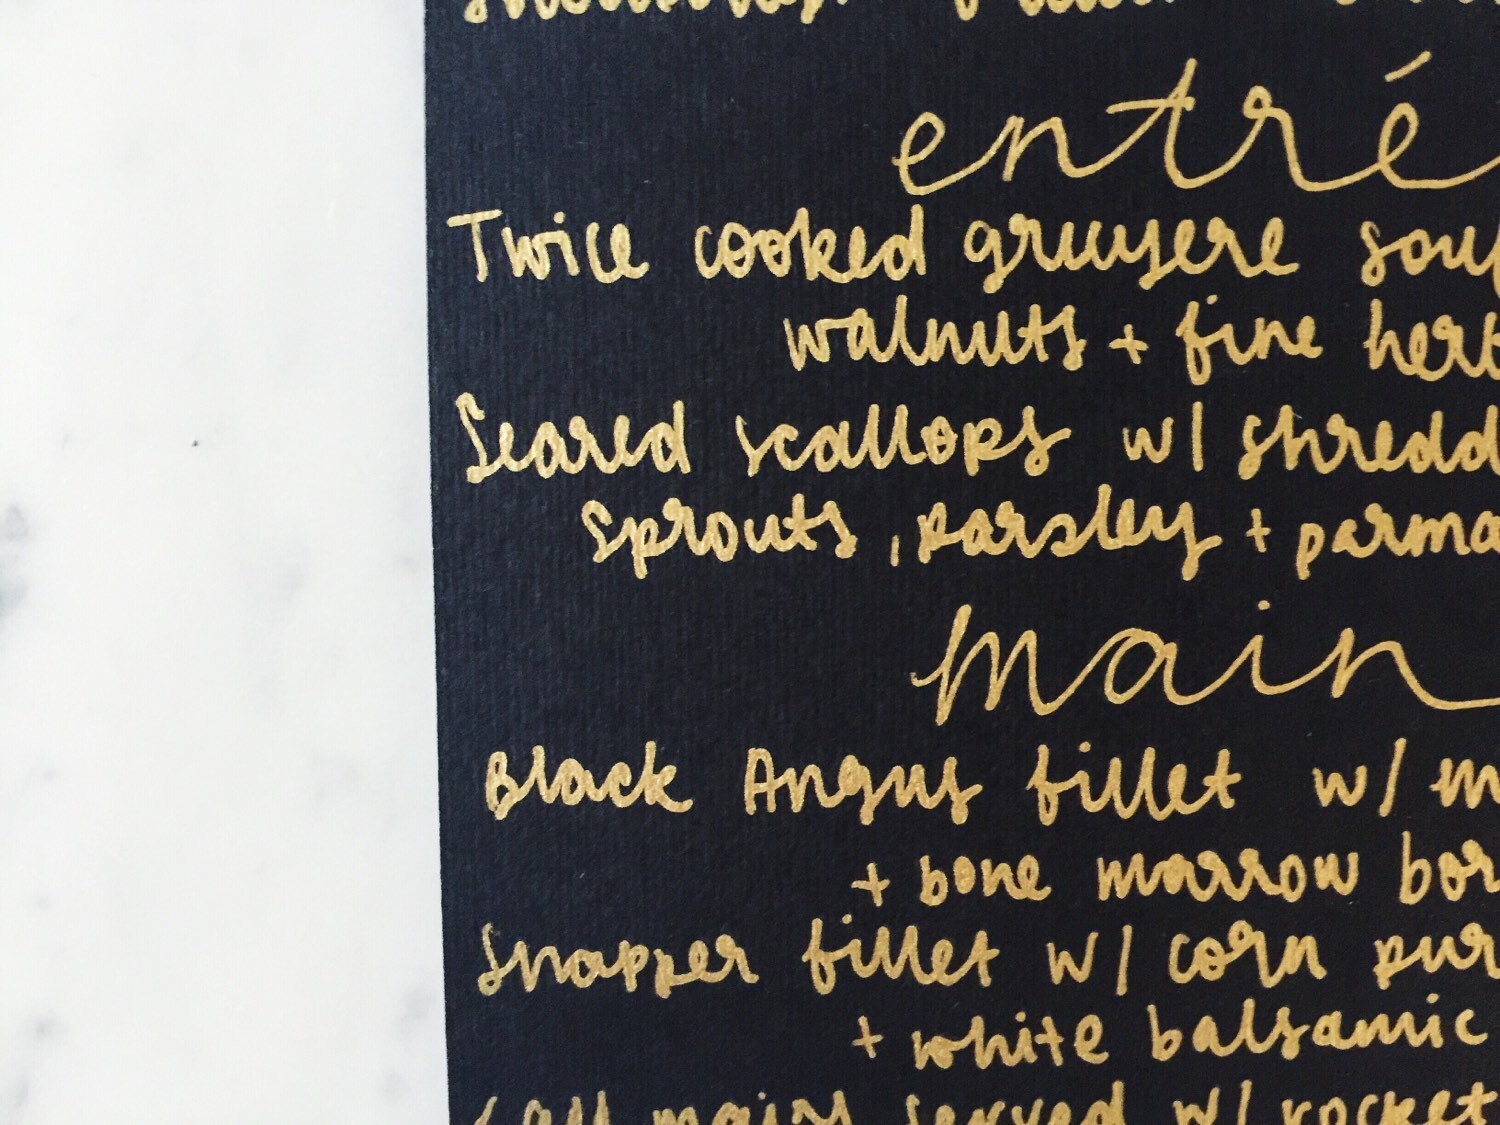 entré
Twice cooked gruyere souf
walnuts + fine herb
Seared scallops w/ shredd
Sprouts, parsley + parma
main
Black Angus fillet w/ m
+ bone marrow bor
Snapper fillet w/ corn pur
+ white balsamic
all mains served w/ rocket